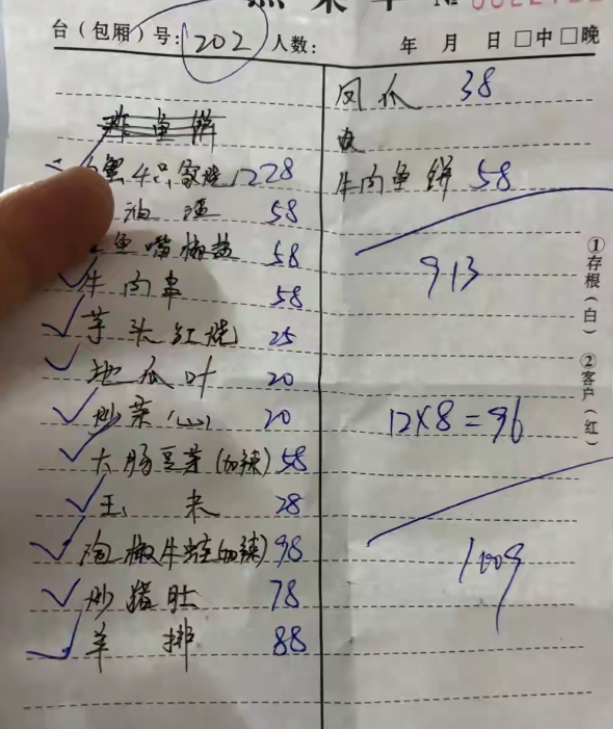 点菜单 №
台（包厢）号: 202 人数: 年 月 日 □中 □晚
蟹4只家烧 1228
油渣 58
鱼嘴椒盐 58
牛肉串 58
芋头红烧 25
地瓜叶 20
炒菜心 20
大肠豆芽(加辣) 58
玉米 28
泡椒牛蛙(加辣) 98
炒猪肚 78
羊排 88
凤爪 38
牛肉鱼饼 58
913
12×8=96
1009
①存根（白） ②客户（红）